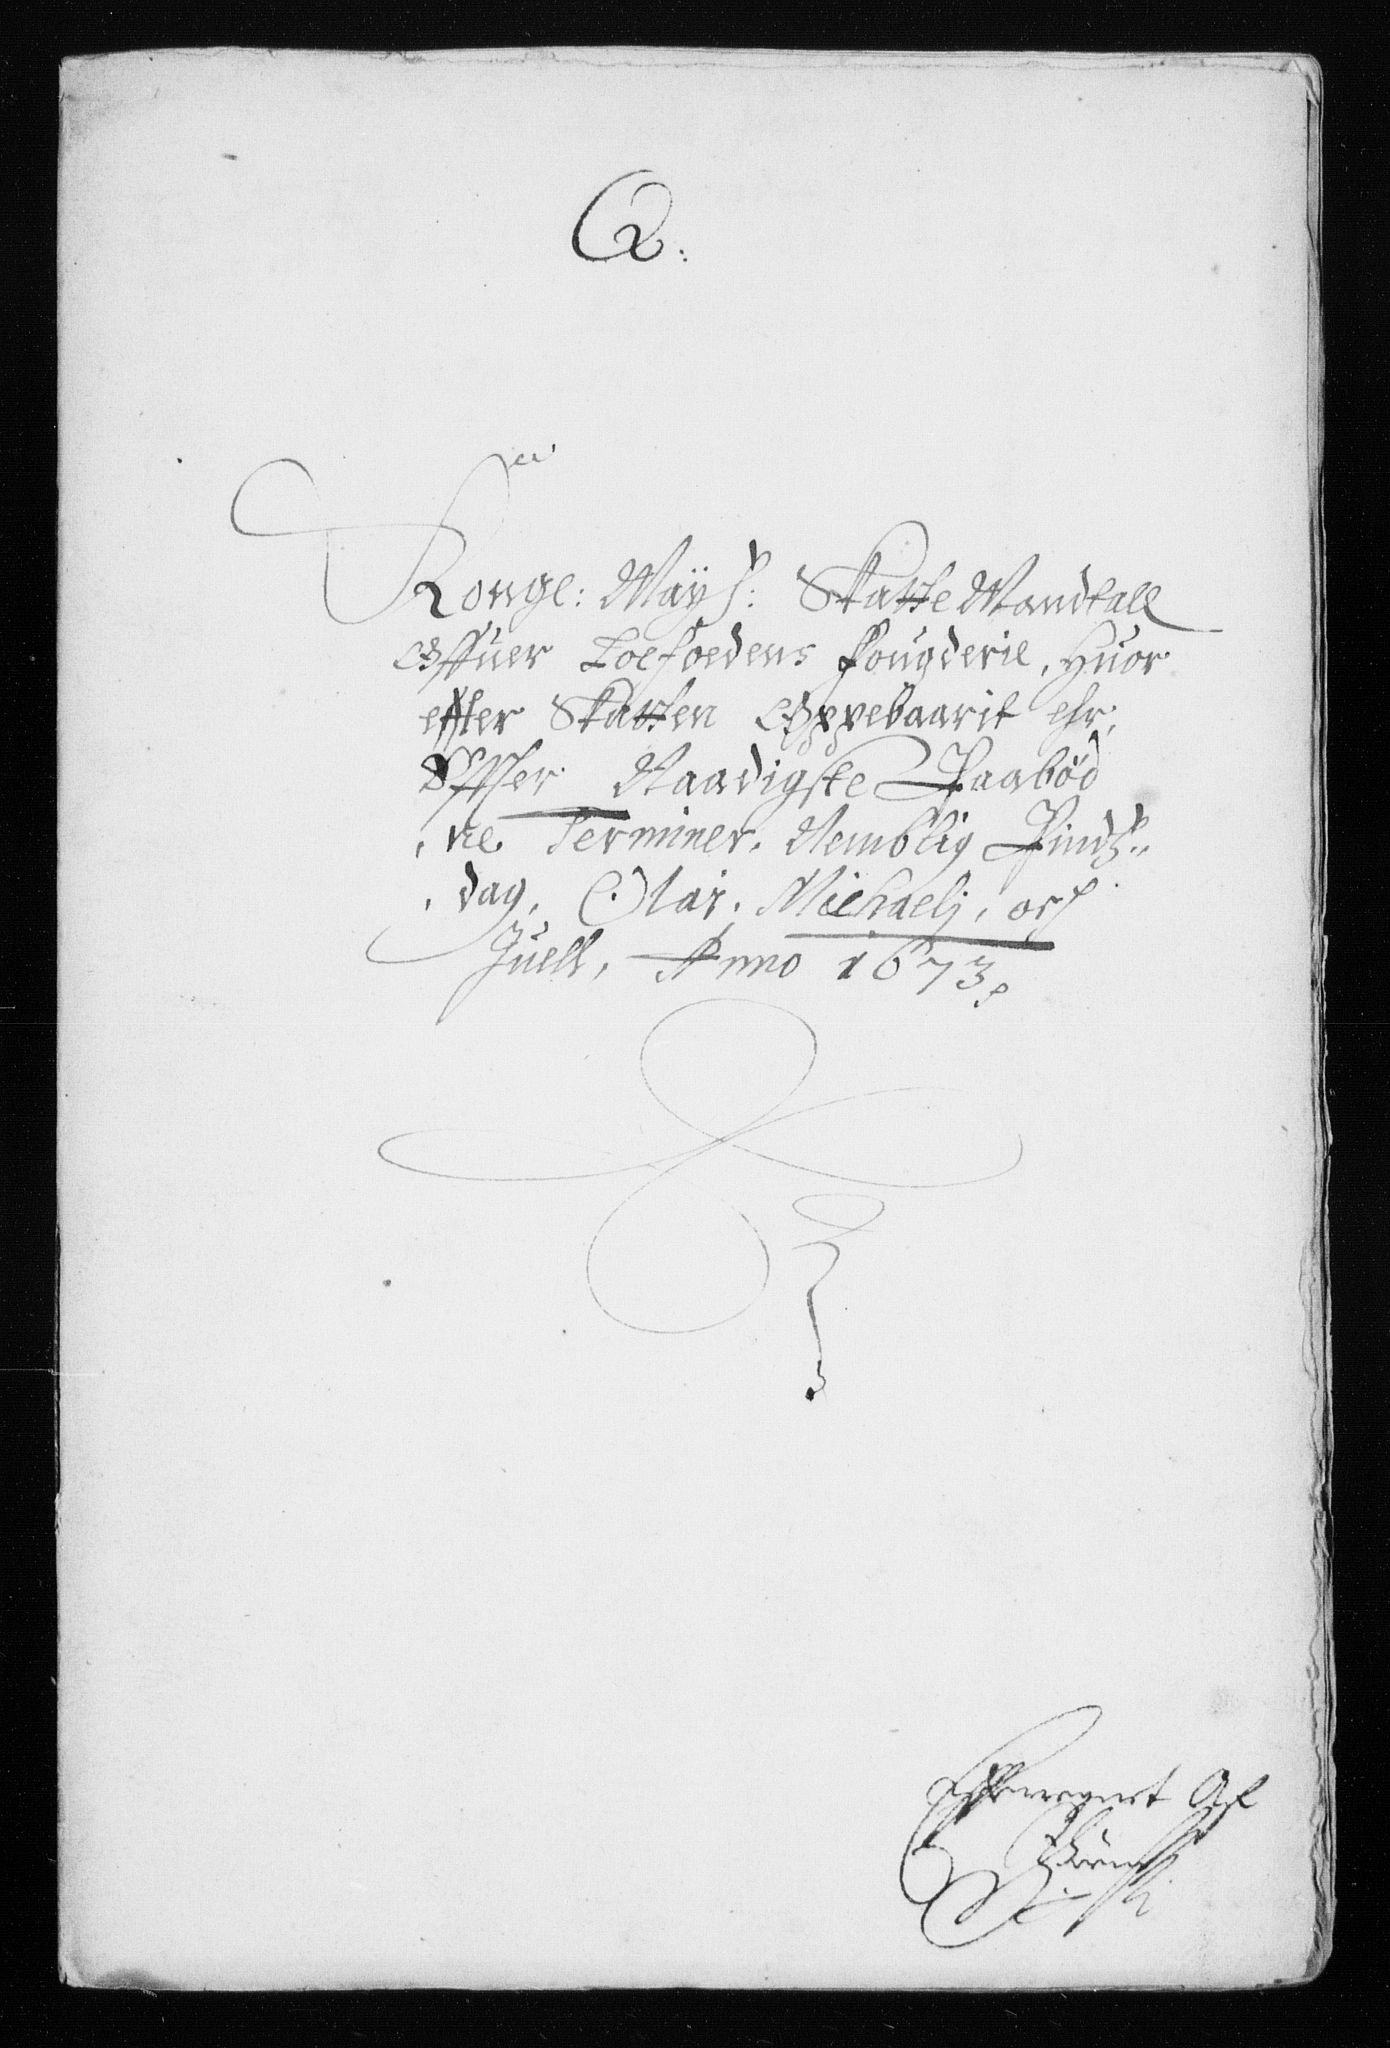 Q:
Kongl: Mayst: Skatte Mandtall
Offuer Loefoedens Fougderie, Huor
effter Skatten Oppebaarit ehr,
Effter Naadigste Paabød
ne Terminer. Nemblig Pindtz
dag, Olai. Michaelj, och
Juell, Anno 1673
Af